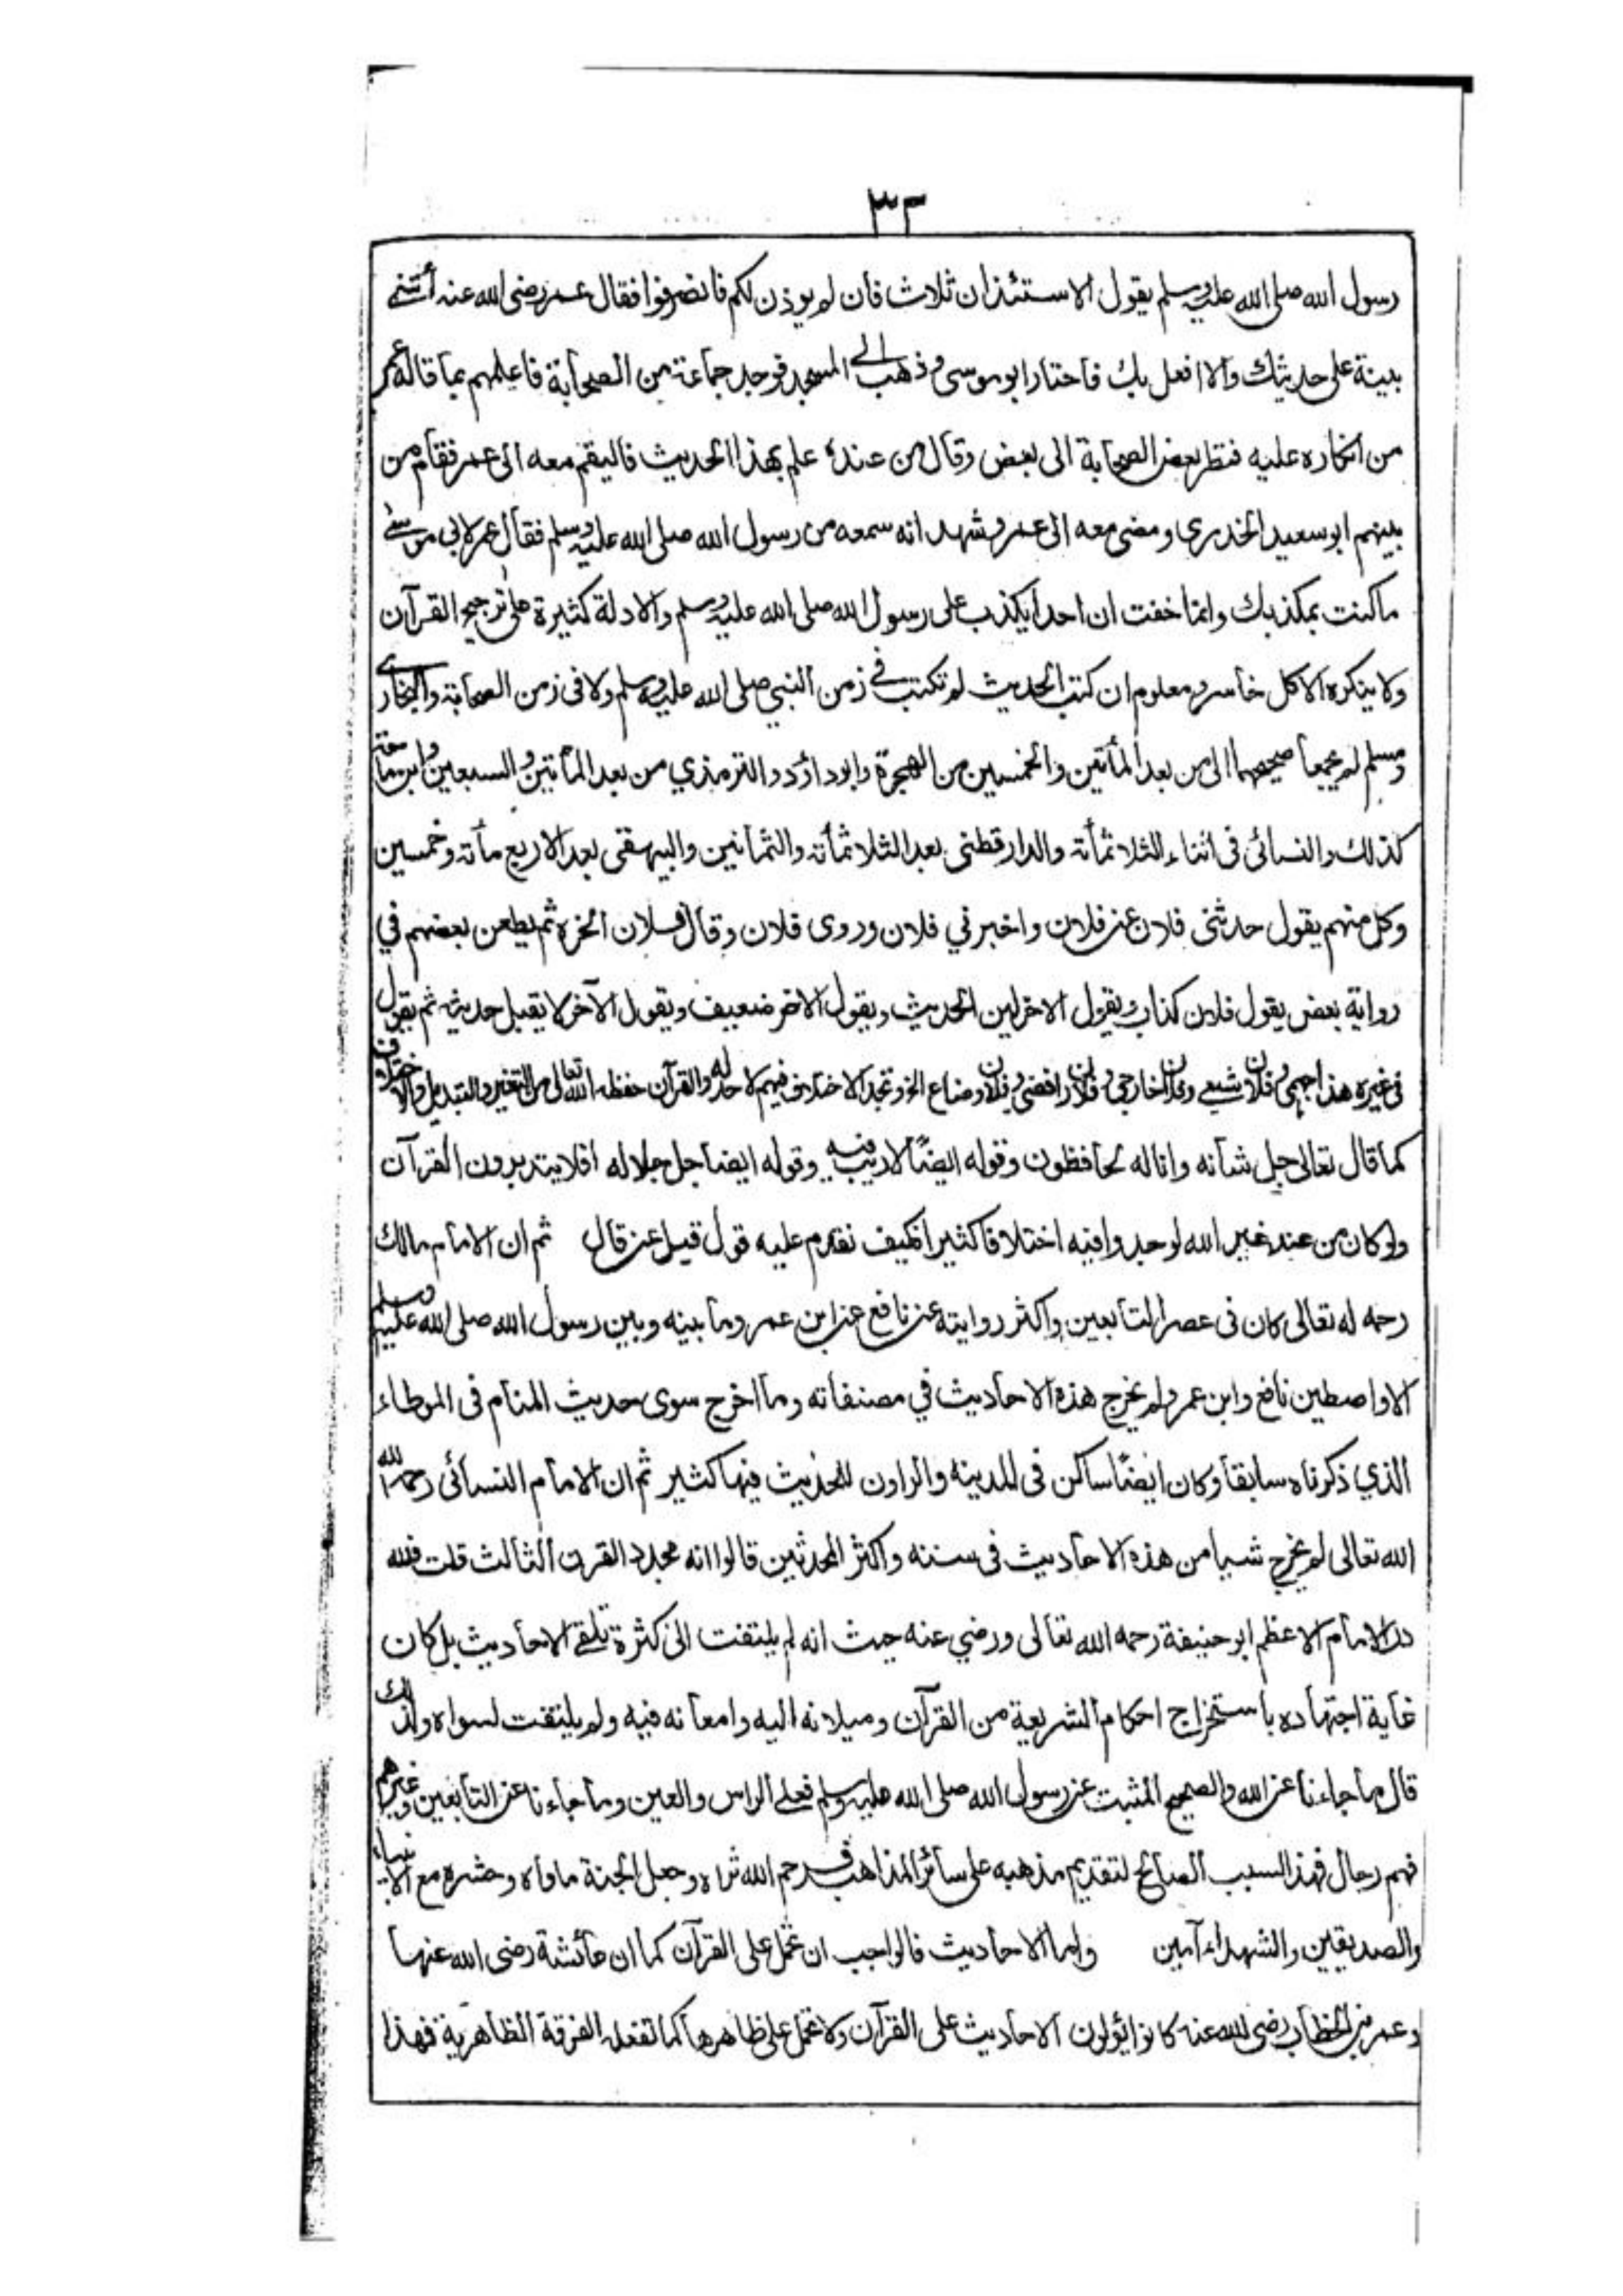 ٣٣
رسول الله صلى الله عليه وسلم يقول الاستئذان ثلاث فأن لم يوذن لكم فانصرفوا فقال عمر رضى الله عنه أتني
بينة على حديثك والا افعل بك فاحتار ابو موسى وذهب الى المسجد فوجد جماعة من الصحابة فاعلمهم بما قاله عمر
من انكاره عليه فنظر بعض الصحابة الى بعض وقال من عنده علم بهذا الحديث فاليقم معه الى عمر فقام من
بينهم ابو سعيد الخدري ومضى معه الى عمر وشهد انه سمعه من رسول الله صلى الله عليه وسلم فقال عمر لابى موسى
ما كنت بمكذبك وانما خفت ان احدا يكذب على رسول الله صلى الله عليه وسلم والادلة كثيرة على ترجيح القرآن
ولا ينكره الا كل خاسر ومعلوم ان كتب الحديث لم تكتب في زمن النبي صلى الله عليه وسلم ولا فى زمن الصحابة والبخاري
ومسلم لم يجمعا صحيحهما الى من بعد المأتين والخمسين من الهجرة وابو داؤد والترمذي من بعد المأتين والسبعين وابن ماجة
كذلك والنسائى فى اثناء الثلاثمأته والدارقطنى بعد الثلاثمأته والثمانين والبيهقى بعد الاربع مأته وخمسين
وكل منهم يقول حدثنى فلان عن فلان واخبرني فلان وروى فلان وقال فلان الخره ثم يطعن بعضهم في
رواية بعض يقول فلان كذاب ويقول الاخر لين الحديث ويقول الاخر ضعيف ويقول الآخر لا يقبل حديثه ثم يقول
فى غيره هذا جهمى وفلان شيعي وفلان خارجى وفلان رافضى وفلان وضاع الخ وتجد الاختلاف فيهم لا حد له والقرآن حفظه الله تعالى من التغير والتبديل والاختلاف
كما قال تعالى جل شأنه وانا له لحافظون وقوله ايضًا لا ريب فيه وقوله ايضا جل جلاله افلا يتدبرون القرآن
ولو كان من عند غير الله لوجدوا فيه اختلافا كثيرا فكيف نقدم عليه قول قيل عن قال ثم ان الامام مالك
رحمه له تعالى كان فى عصر التابعين واكثر روايته عن نافع عن ابن عمر وما بينه وبين رسول الله صلى الله عليه وسلم
الا واصطين نافع وابن عمر ولم يخرج هذه الاحاديث في مصنفاته وما اخرج سوى حديث المنام فى الموطاء
الذي ذكرناه سابقا وكان ايضًا ساكن فى المدينه والراون للحديث فيها كثير ثم ان الامام النسائى رحمه الله
الله تعالى لم يخرج شيا من هذه الاحاديث فى سننه واكثر المحدثين قالوا انه مجدد القرن الثالث قلت فلله
در الامام الاعظم ابو حنيفة رحمه الله تعالى ورضي عنه حيث انه لم يلتفت الى كثرة تلقى الاحاديث بل كان
غاية اجتهاده باستخراج احكام الشريعة من القرآن وميلانه اليه وامعانه فيه ولم يلتفت لسواه ولذلك
قال ما جاءنا عن الله والصحيح المثبت عن رسول الله صلى الله عليه وسلم فعلى الراس والعين وما جاءنا عن التابعين وغيرهم
فهم رجال فهذا السبب الصالح لتقديم مذهبه على سائر المذاهب فرحم الله ثراه وجعل الجنة ماواه وحشره مع الانبياء
والصديقين والشهداء آمين واما الاحاديث فالواجب ان تحمل على القرآن كما ان عائشة رضى الله عنها
وعمر بن الخطاب رضى الله عنه كانوا يئولون الاحاديث على القرآن ولا تحمل على ظاهرها كما تفعله الفرقة الظاهرية فهذا